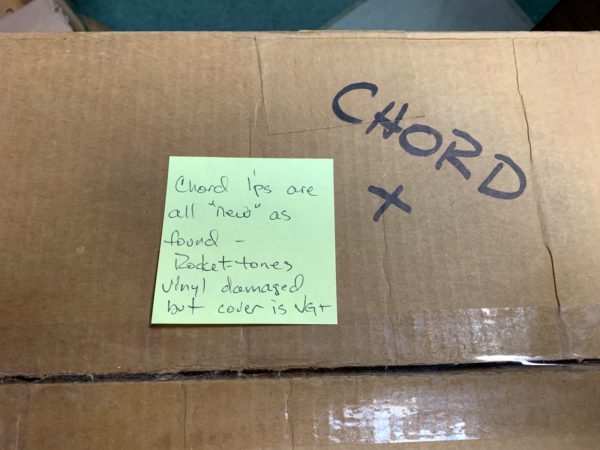 CHORD
+
Chord l'ps are
all "new" as
found -
Rocket-tones
vinyl damaged
but cover is VG+